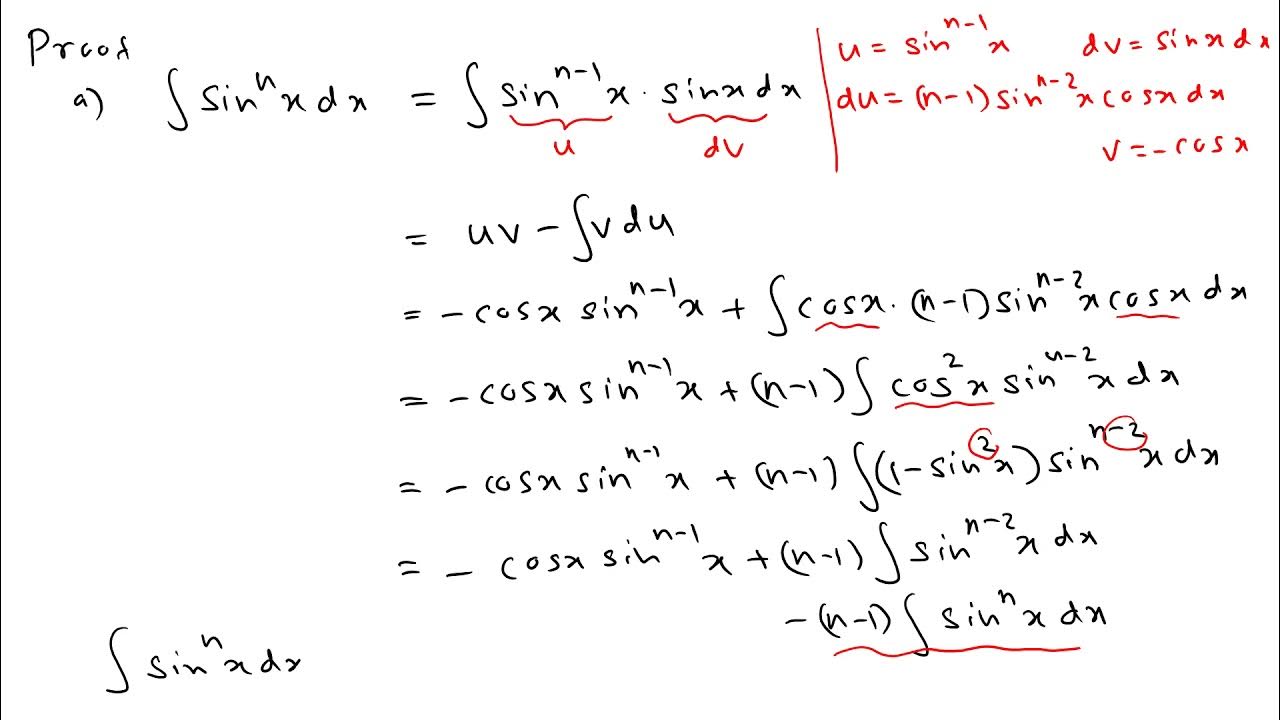 Proof
a) ∫ sinⁿx dx = ∫ sinⁿ⁻¹x · sinx dx
u dv
u = sinⁿ⁻¹x dv = sinx dx
du = (n-1) sinⁿ⁻²x cosx dx
v = -cosx
= uv - ∫v du
= - cosx sinⁿ⁻¹x + ∫ cosx · (n-1) sinⁿ⁻²x cosx dx
= - cosx sinⁿ⁻¹x + (n-1) ∫ cos²x sinⁿ⁻²x dx
= - cosx sinⁿ⁻¹x + (n-1) ∫ (1 - sin²x) sinⁿ⁻²x dx
= - cosx sinⁿ⁻¹x + (n-1) ∫ sinⁿ⁻²x dx
- (n-1) ∫ sinⁿx dx
∫ sinⁿx dx